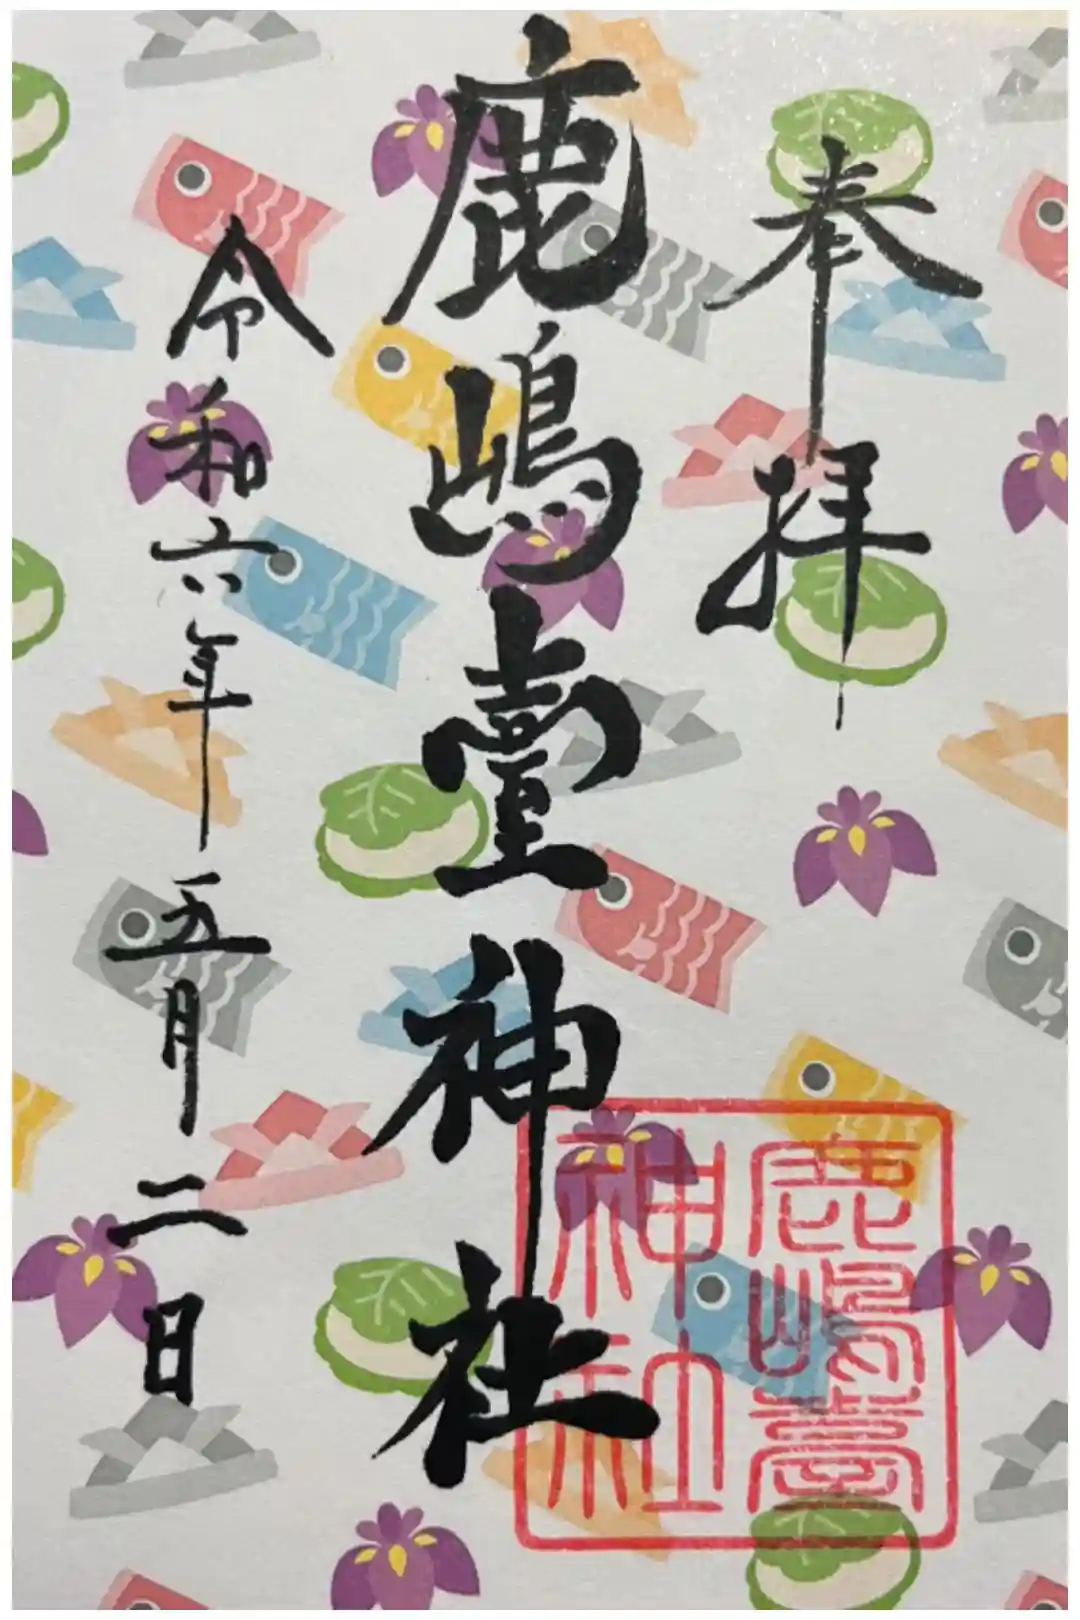 奉拝
鹿嶋臺神社
令和六年五月二日
鹿嶋臺
神社